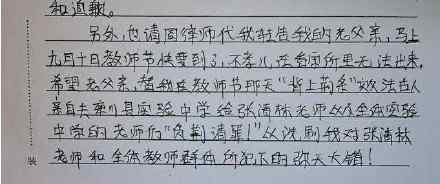 和道歉。
另外,也请周律师代我转告我的老父亲,马上
九月十日教师节快要到了,不孝儿,在看守所里无法出来,
希望老父亲,替我在教师节那天“背上荆条”效法古人
亲自去栾川县实验中学给张清林老师以及全体实验
中学的老师们“负荆请罪!”以洗刷我对张清林
老师和全体教师群体所犯下的弥天大错!
装